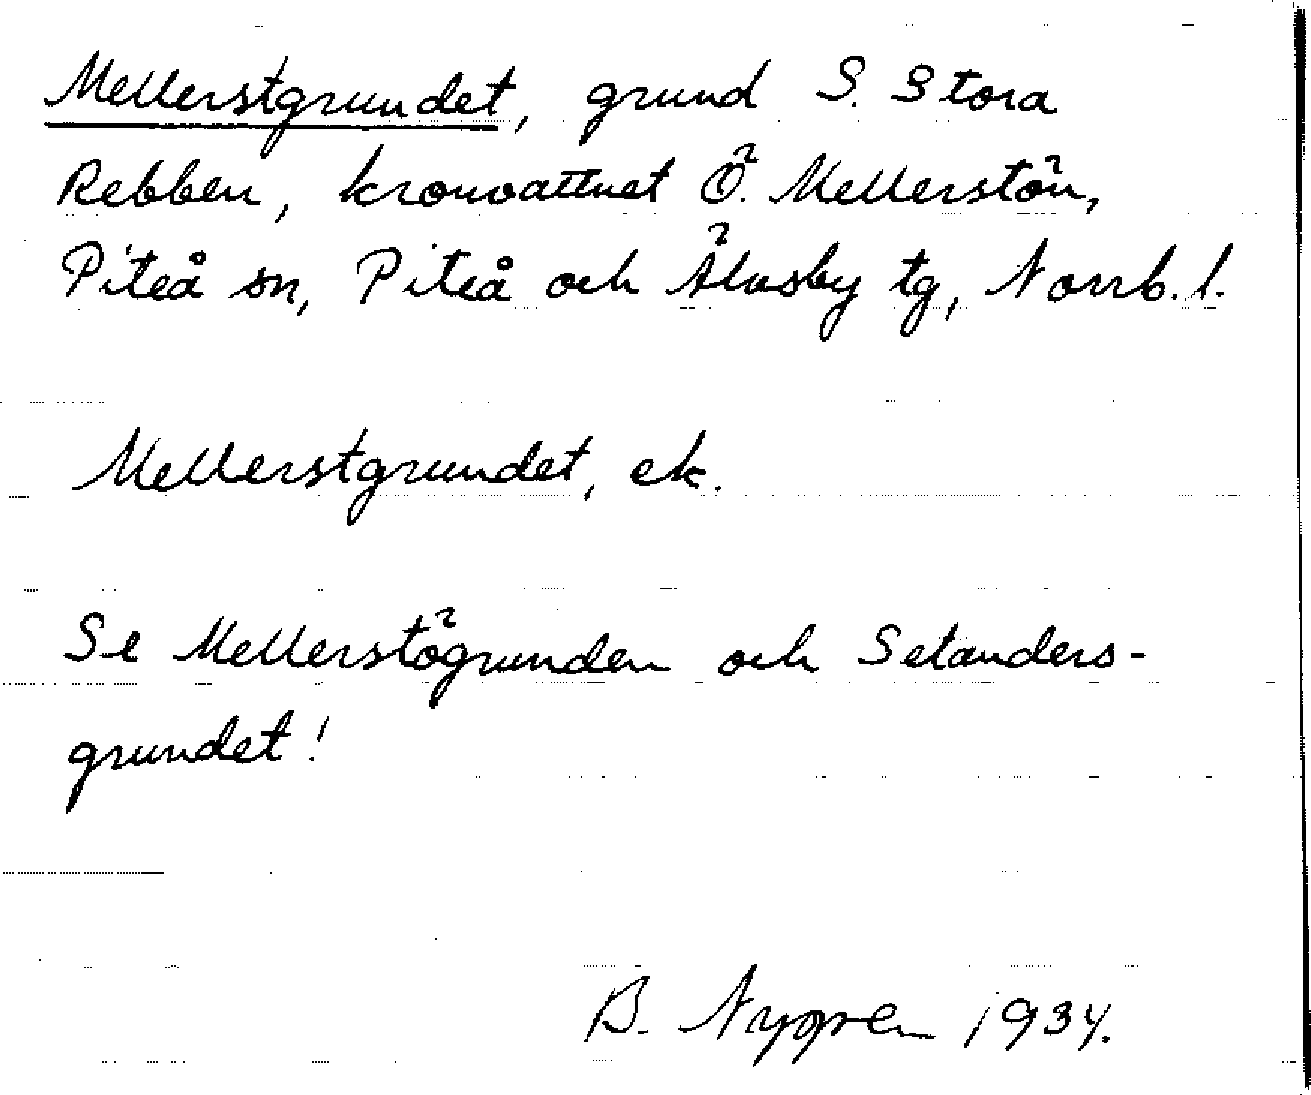 Mellerstgrundet, grund S. Stora
Rebben, kronvattnet Ö. Mellerstön,
Piteå sn, Piteå och Älvsby tg, Norrb. l.
Mellerstgrundet, ek.
Se Mellerstögrunden och Selanders-
grundet!
B. Nygren 1934.